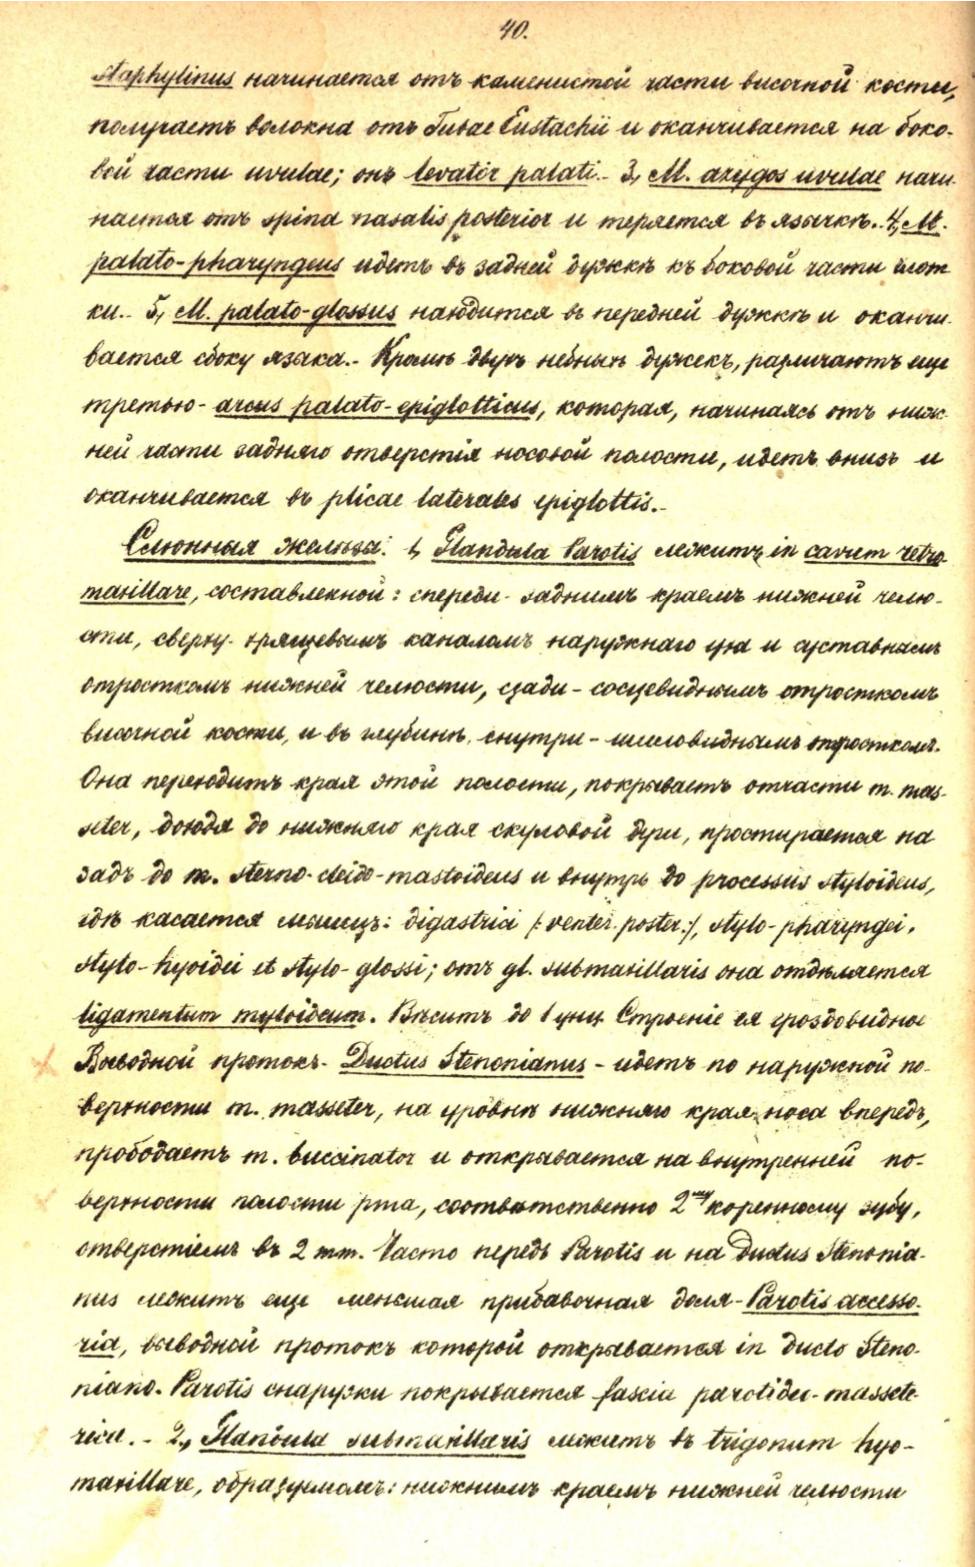 40.
staphylinus начинается отъ каменистой части височной кости,
получаетъ волокна отъ Tubae Eustachii и оканчивается на боко-
вой части uvulae; онъ levator palati.- 3, M. azygos uvulae начи-
нается отъ spina nasalis posterior и теряется въ язычкѣ.- 4, M.
palato-pharyngeus идетъ въ задней дужкѣ къ боковой части глот-
ки.- 5, M. palato-glossus находится въ передней дужкѣ и оканчи-
вается сбоку языка.- Кромѣ двухъ небныхъ дужекъ, различаютъ еще
третью- arcus palato-epiglotticus, которая, начинаясь отъ ниж-
ней части задняго отверстія носовой полости, идетъ внизъ и
оканчивается въ plicae laterales epiglottis.-
Слюнныя железы: 1, Glandula Parotis лежитъ in cavum retro-
maxillare, составленной: спереди- заднимъ краемъ нижней челю-
сти, сверху- хрящевымъ каналомъ наружнаго уха и суставнымъ
отросткомъ нижней челюсти, сзади- сосцевиднымъ отросткомъ
височной кости, и въ глубинѣ, снутри- шиловиднымъ отросткомъ.
Она переходитъ края этой полости, покрываетъ отчасти m. mas-
seter, доходя до нижняго края скуловой дуги, простирается на
задъ до m. sterno-cleido-mastoideus и внутрь до processus styloideus,
гдѣ касается мышцъ: digastrici /:venter poster.:/, stylo-pharyngei,
stylo-hyoidei et stylo-glossi; отъ gl. submaxillaris она отдѣляется
ligamentum myloideum. Вѣситъ до 1 унц. Строеніе ея гроздовидное
Выводной протокъ- Ductus Stenonianus- идетъ по наружной по-
верхности m. masseter, на уровнѣ нижняго края носа впередъ,
прободаетъ m. buccinator и открывается на внутренней по-
верхности полости рта, соотвѣтственно 2му коренному зубу,
отверстіемъ въ 2 mm. Часто передъ Parotis и на Ductus Stenonia-
nus лежитъ еще меньшая прибавочная доля- Parotis accesso-
ria, выводной протокъ которой открывается in ducto Steno-
niano. Parotis снаружи покрывается fascia parotideo-massete-
rica.- 2, Glandula submaxillaris лежитъ въ trigonum hyo-
maxillare, образуемомъ: нижнимъ краемъ нижней челюсти